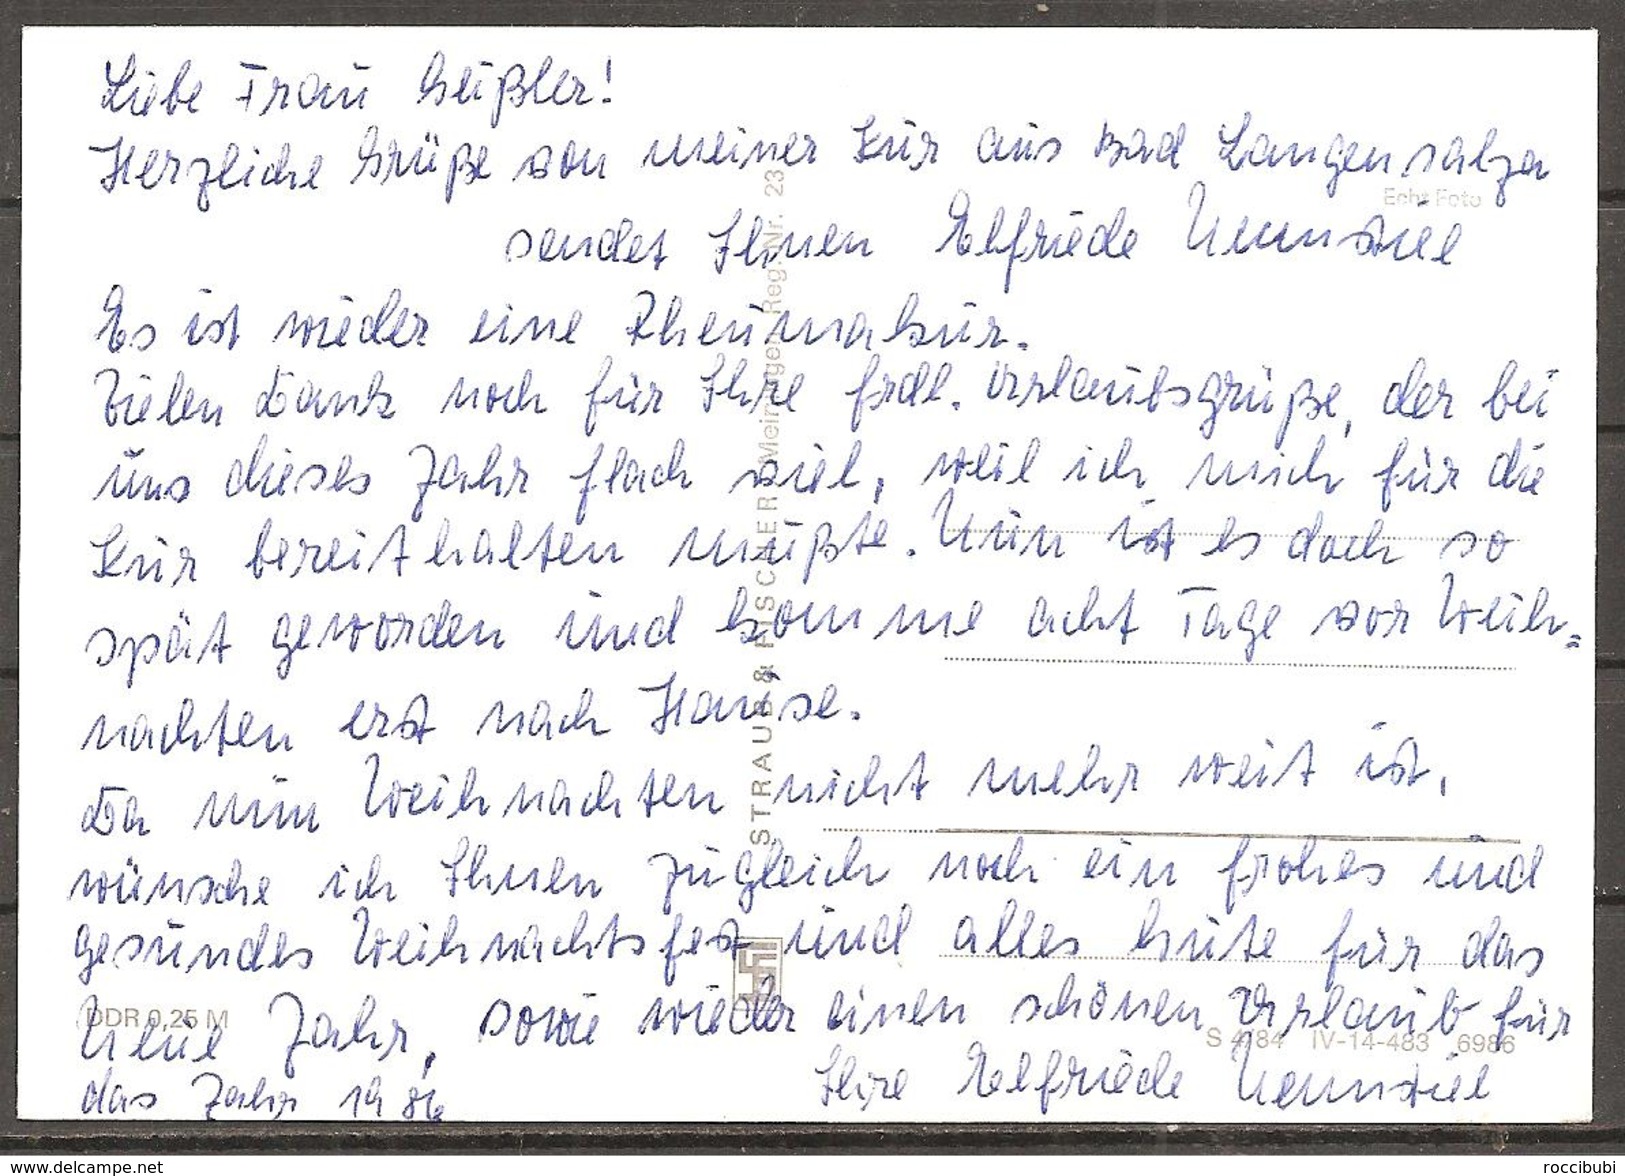 Liebe Frau Geißler!
Herzliche Grüße von meiner Kur aus Bad Langensalza
Echt Foto
sendet Ihnen Elfriede Neunstiel
Es ist wieder eine Rheumakur.
Vielen Dank noch für Ihre frdl. Urlaubsgrüße, der bei
uns dieses Jahr flach viel, weil ich mich für die
Kur bereithalten mußte. Nun ist es doch so
spät geworden und komme acht Tage vor Weih=
nachten erst nach Hause.
Da nun Weihnachten nicht mehr weit ist,
wünsche ich Ihnen zugleich noch ein frohes und
gesundes Weihnachtsfest und alles Gute für das
Neue Jahr, sowie wieder einen schönen Urlaub für
das Jahr 1986
Ihre Elfriede Neunstiel
STRAUB & FISCHER Meiningen Reg.-Nr. 23
DDR 0,25 M
S 4/84 IV-14-483 6986
delcampe.net
roccibubi